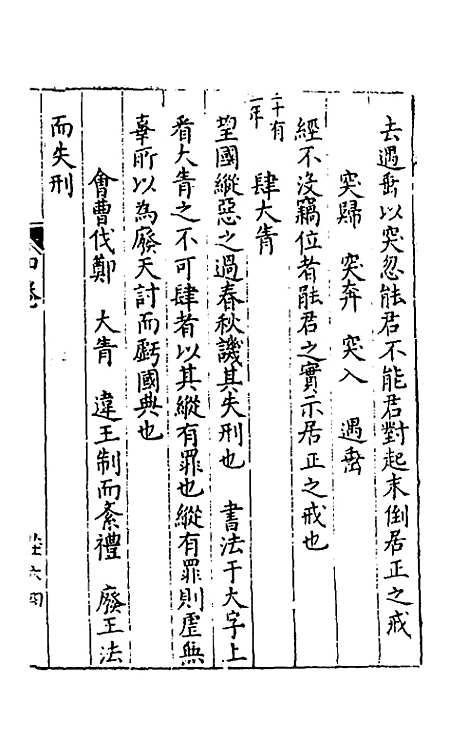 去遇垂以突忽能君不能君對起末倒居正之戒
突歸　突奔　突入　遇垂
經不沒竊位者能君之實示居正之戒也
二十有二年　肆大眚
望國縱惡之過春秋譏其失刑也　書法于大字上
看大眚之不可肆者以其縱有罪也縱有罪則虐無
辜所以為廢天討而虧國典也
會曹伐鄭　大眚　違王制而紊禮　廢王法
而失刑